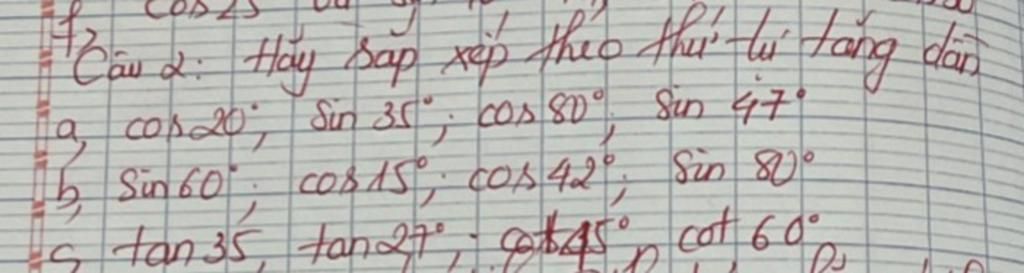 cos 25
Câu 2: Hãy sắp xếp theo thứ tự tăng dần
a, cos 20°; Sin 35°; cos 80°; Sin 47°
b, Sin 60°; cos 15°; cos 42°; Sin 80°
c, tan 35, tan 27°; cot 45°, cot 60°